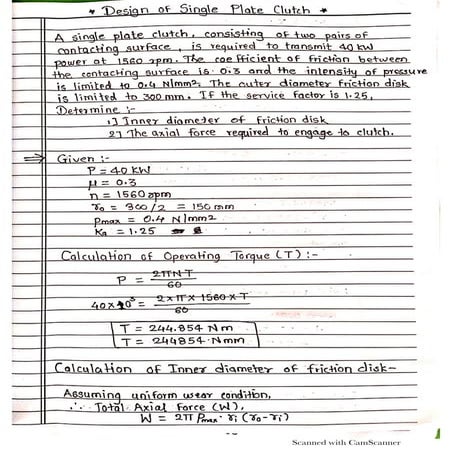 * Design of Single Plate Clutch *
A single plate clutch, consisting of two pairs of
contacting surface, is required to transmit 40 kW
power at 1560 rpm. The coefficient of friction between
the contacting surface is 0.3 and the intensity of pressure
is limited to 0.4 N/mm2. The outer diameter friction disk
is limited to 300 mm. If the service factor is 1.25,
Determine :-
1.] Inner diameter of friction disk
2] The axial force required to engage to clutch.
⇒ Given :-
P = 40 KW
μ = 0.3
n = 1560 rpm
ro = 300/2 = 150 mm
Pmax = 0.4 N/mm2
Ka = 1.25
Calculation of Operating Torque (T) :-
P = 2πNT/60
40×10³ = 2×π×1560×T/60
T = 244.854 Nm
T = 244854 Nmm
Calculation of Inner diameter of friction disk-
Assuming uniform wear condition,
∴ Total Axial Force (W),
W = 2π Pmax· ri (ro-ri)
Scanned with CamScanner